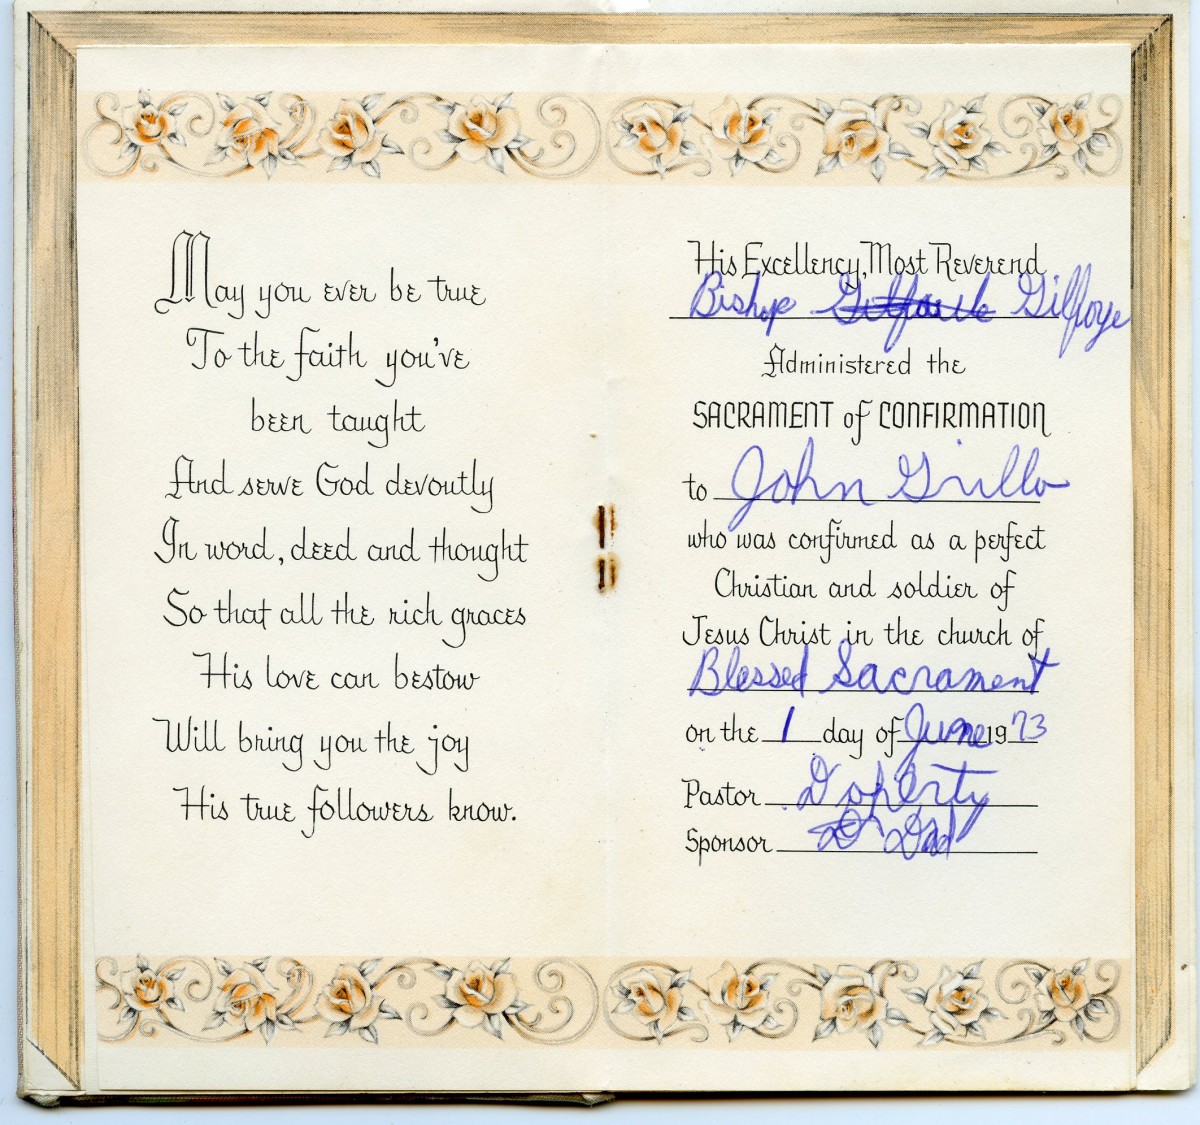 May you ever be true
To the faith you've
been taught
And serve God devoutly
In word, deed and thought
So that all the rich graces
His love can bestow
Will bring you the joy
His true followers know.
His Excellency, Most Reverend
Bishop Gilfoye
Administered the
SACRAMENT of CONFIRMATION
to John Grillo
who was confirmed as a perfect
Christian and soldier of
Jesus Christ in the church of
Blessed Sacrament
on the 1 day of June 1973
Pastor Doherty
Sponsor Dad